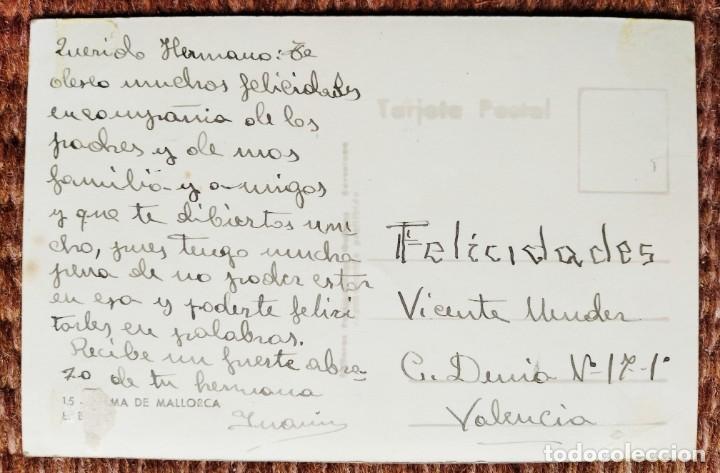 Querido Hermano: Te
deseo muchos felicidades
en compañia de los
padres y de mas
familia y amigos
y que te dibiertas mu
cho, pues tengo mucha
pena de no poder estar
en esa y poderte felici
tarles en palabras.
Recibe un fuerte abra-
zo de tu hermana
Juanin
15 - MA DE MALLORCA
Tarjeta Postal
Felicidades
Vicente
C. Denia Nº-17-1º
Valencia
todocoleccion.net